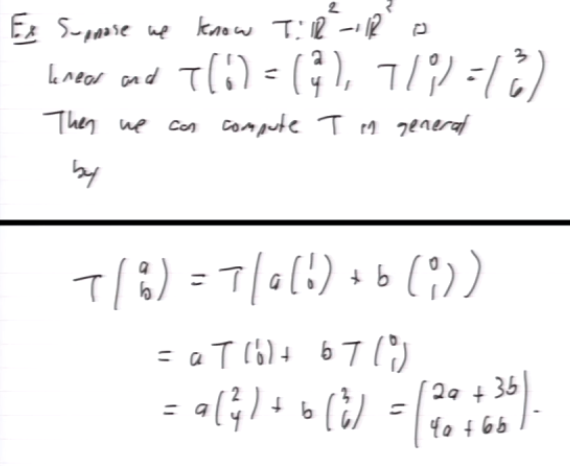 Ex Suppose we know T: ℝ² → ℝ² is
linear and T(1 0) = (2 4), T(0 1) = (3 6)
Then we can compute T in general
by
T(a b) = T(a(1 0) + b(0 1))
= aT(1 0) + bT(0 1)
= a(2 4) + b(3 6) = (2a + 3b 4a + 6b).